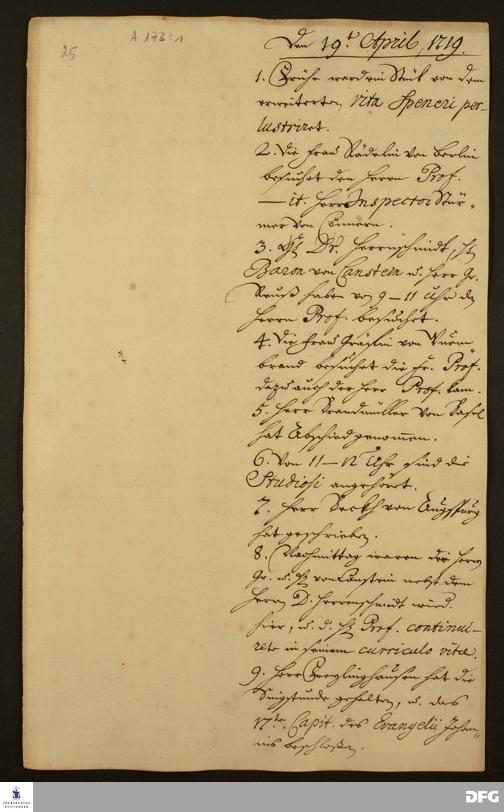 A 173:1
25
Den 19.t April, 1719.
1. Frühe ward ein Stük von dem
erweiterten Vita Speneri per-
lustriret.
2. Die Frau Rädelin von Berlin
besuchet den Herrn Prof.
— it. Herr Inspector Stür-
mer von Cönnern.
3. H. Dr. Herrnschmidt, H.
Baron von Canstein u. Herr Gr.
Reuß haben von 9–11 Uhr den
Herrn Prof. besuchet.
4. Die Frau Gräfin von Wurm-
brand besuchet die Fr. Prof.
dazu auch der Herr Prof. kam.
5. Herr Brandmüller von Basel
hat Abschied genommen.
6. Von 11–12 Uhr sind die
Studiosi angehöret.
7. Herr von Augspurg
hat geschrieben.
8. Nachmittag waren der Herr
Gr. u. H. von Canstein nebst dem
Herrn D. Herrnschmidt
hier, u. d. H. Prof. continui-
rete in seinem curriculo vitae.
9. Herr hat die
Singstunde gehalten, u. das
17te Capit. des Evangelii Johan-
nis beschloßen.
FRANCKESCHE STIFTUNGEN
DFG